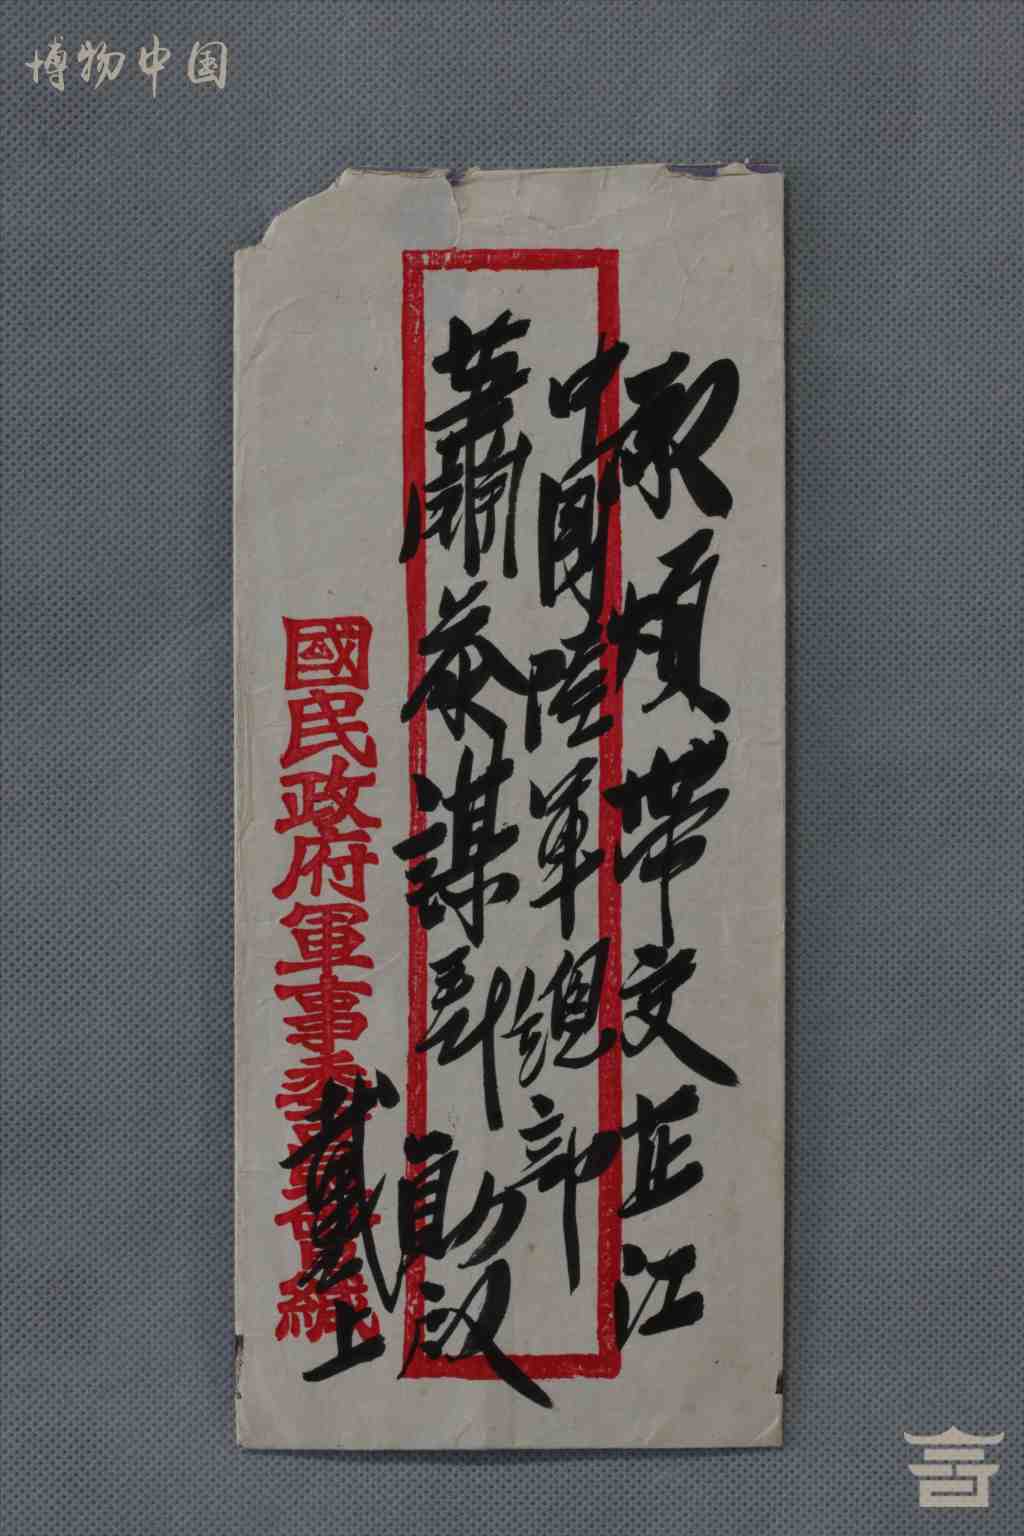 博物中国
承煩帶交芷江
中國陸軍總部
蕭參謀長 勛啟
國民政府軍事委員會緘
戴上